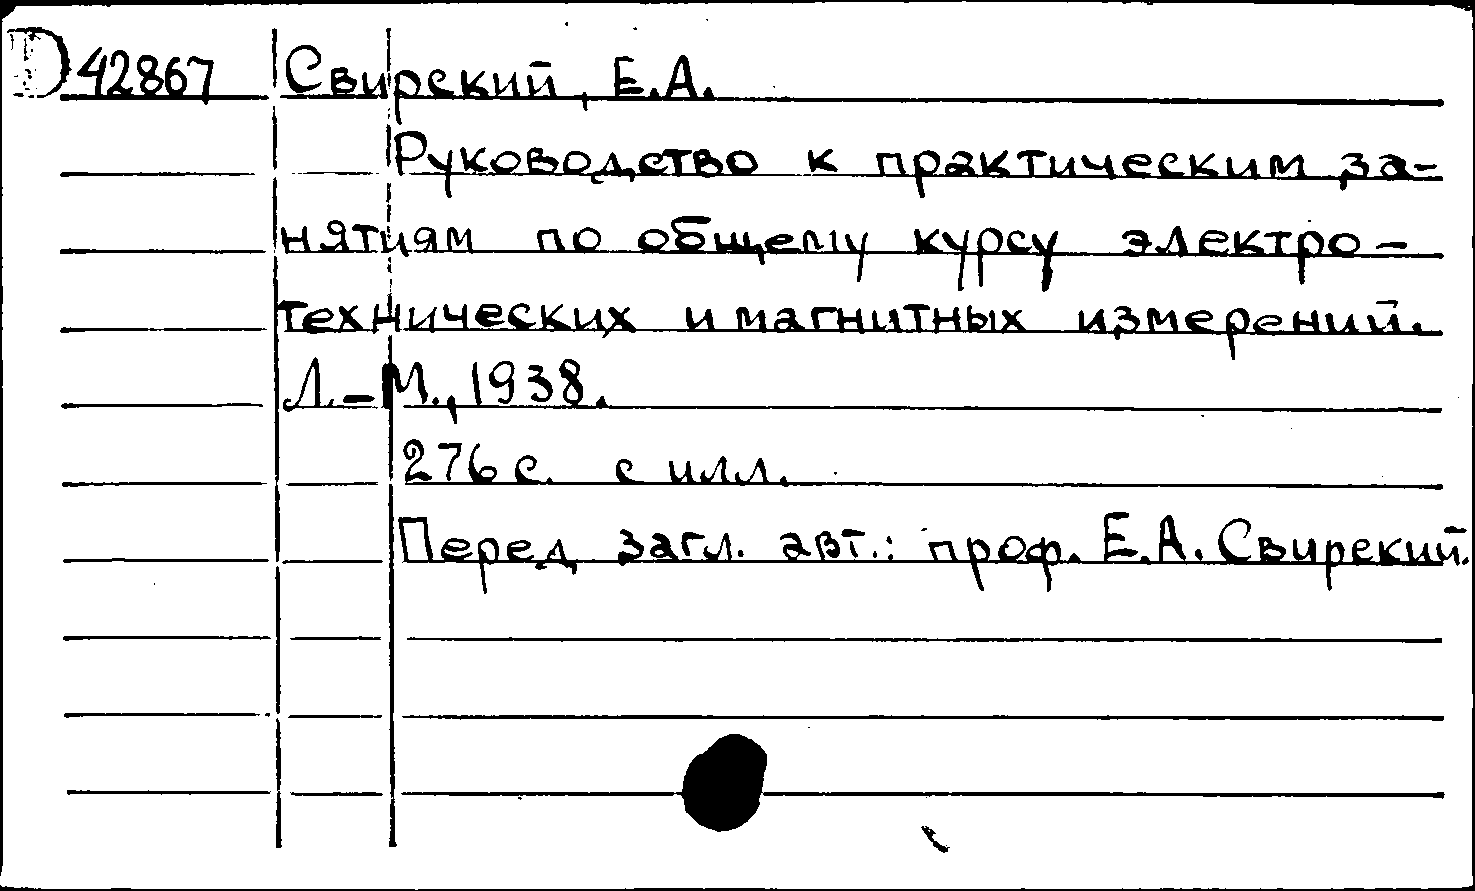 D 42867 Свирский, Е.А.
Руководство к практическим за-
нятиям по общему курсу электро-
технических и магнитных измерений.
Л.-М., 1938.
276 с. с илл.
Перед загл. авт.: проф. Е.А. Свирский.